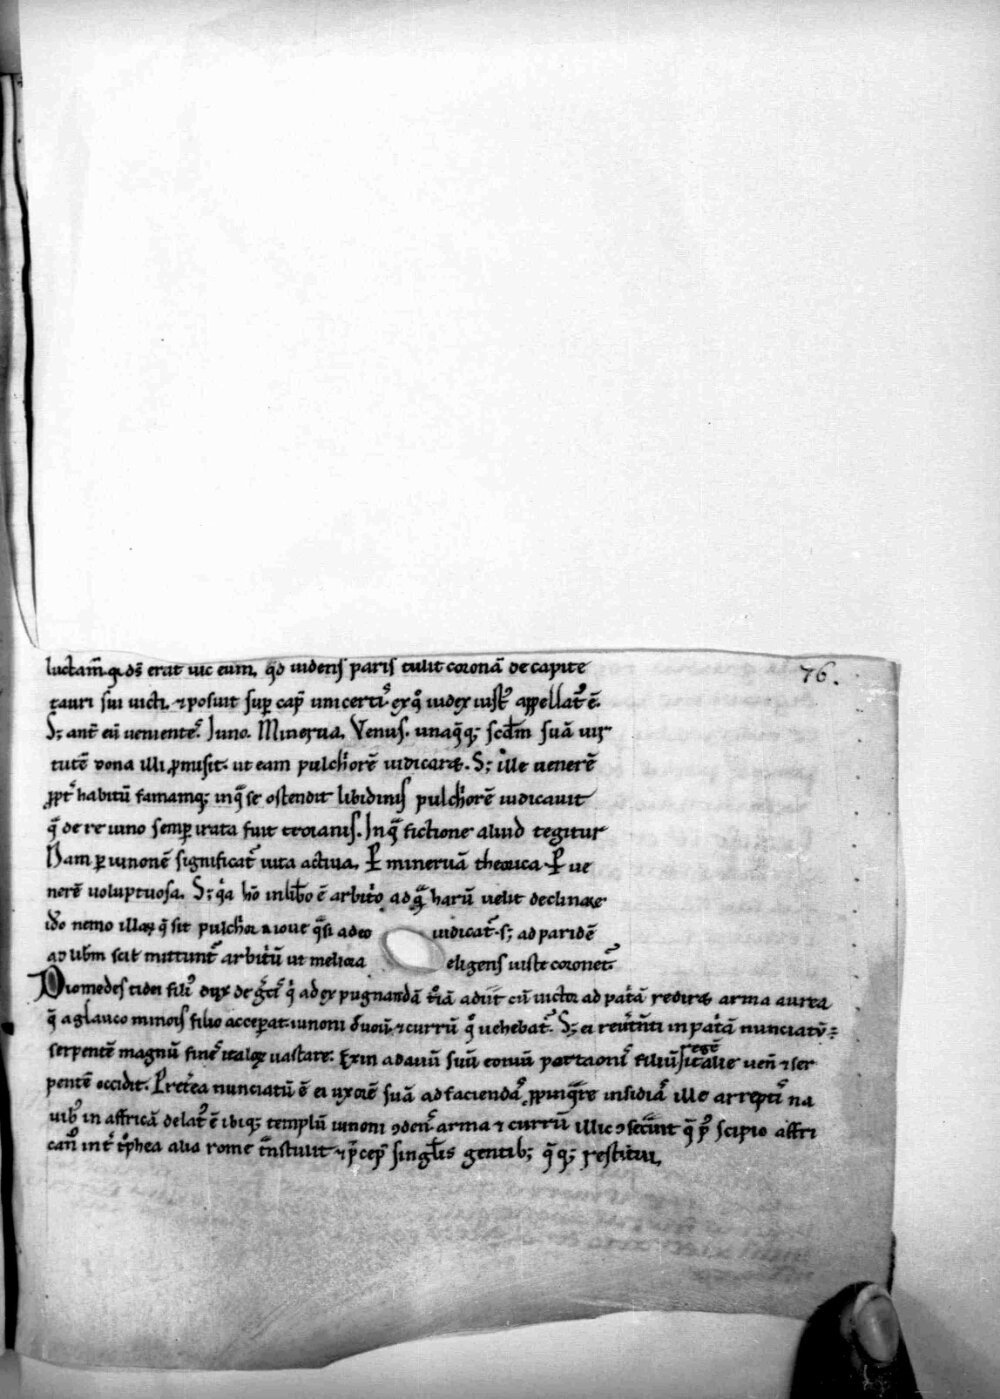 luctam̄. q̇ d̄s erat uic eum. qđ uidens paris tulit coronā de capite
76.
tauri sui uicti. ⁊ posuit sup̱ cap̄ uincertiꝰ. ex q̊ iudex iustꝰ appellatꝰ ē.
S; ant̄ eū uenienteˢ. Iuno. Minerua. Venus. unaq̄q; scđm suā uir
tutē dona illi ꝓmisit. ut eam pulch̓orē iudicaret. S; ille uenerē
ꝓpt̄ habitū famamq; inq̄ se ostendit libidinis pulch̓orē iudicauit
q̄ de re iuno semp̱ irata fuit troianis. In q̄ fictione aliud tegitur
Nam p̱ iunonē significat̄ uita actiua. P̱ mineruā theorica. P̱ ue
nerē uoluptuosa. S; q̓a hō in lib̄o ē arbit̓o ad q̄ harū uelit declinare
iđo nemo illaꝝ q̄ sit pulch̓or a ioue q̄si a deo iudicat̄. s; ad paridē
ad ubm scil mittunt̄ arbit̓ū ut meliora eligens iuste coronet̄.
Diomedes tidei filiꝰ dux de g̓ciꝰ q̓ ad expugnandā t̓iā adiit cū uictor ad pat̓ā rediret arma aurea
q̄ a glauco minois filio accep̱at. iunoni d̓uouit ⁊ currū q̊ uehebat̄. S; ei reu̓t̄nti in pat̓ā nunciatū ē
serpentē magnū fineˢ italoꝝ uastare. Exin ad auū suū eoniū partaoniˢ filiū regē italie uen̄ ⁊ ser
pentē occidit. Pret̓ea nunciatū ē ei uxorē suā ad faciendaˢ ꝓpinq̄re insidiaˢ ille arreptiˢ na
uibꝰ in affricā delatꝰ ē ibiq; templū iunoni ꝯdenˢ arma ⁊ currū illic ꝯsec̄uit q̄ p̄ scipio affri
canꝰ int̄ t̓phea alia rome t̄nstulit ⁊ p̄cep̄ singlis̄ gentib; q̄q; restitui.